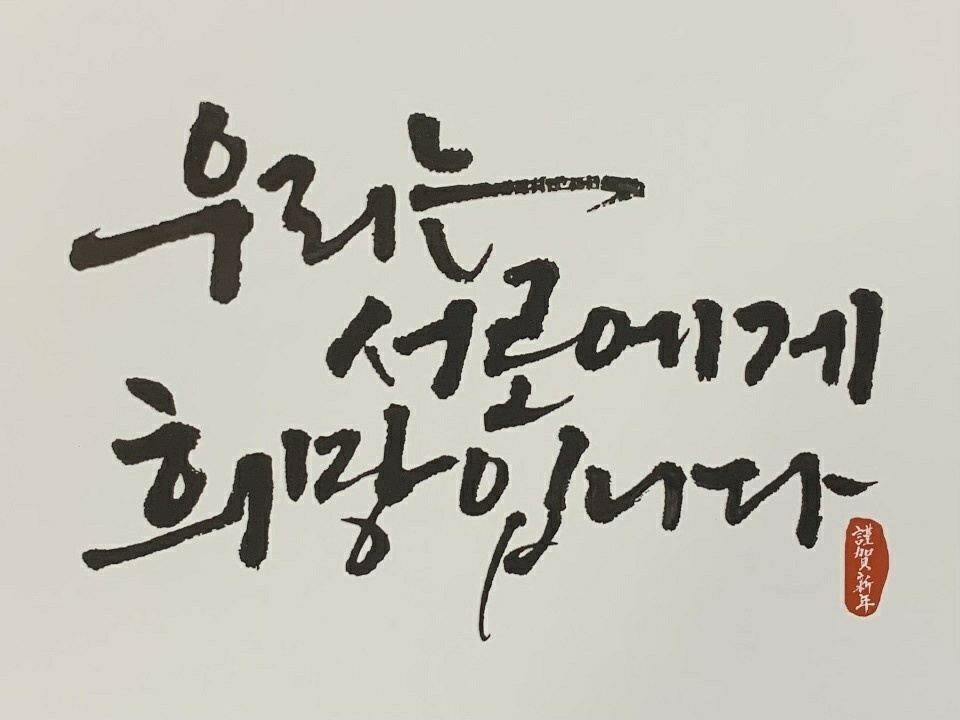 우리는
서로에게
희망입니다
謹賀新年